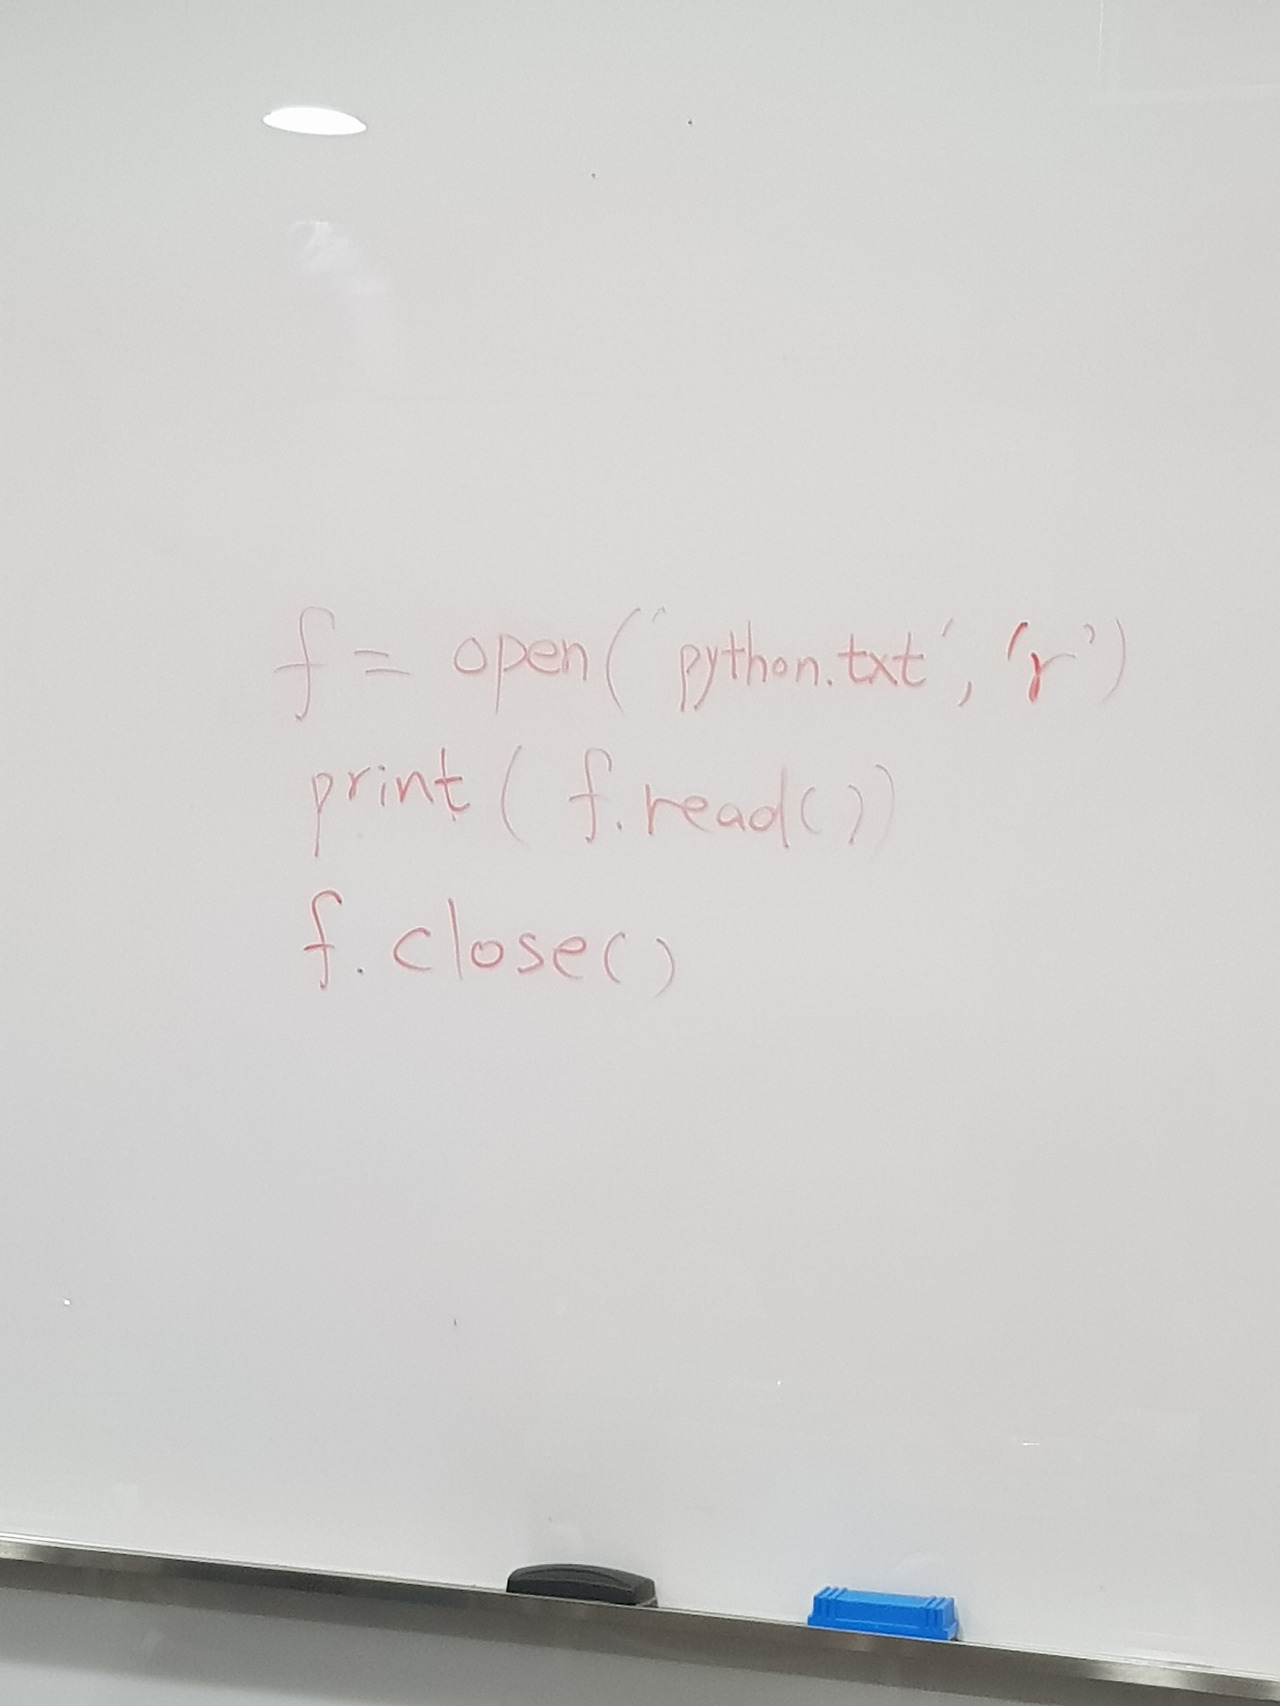 f = open('python.txt', 'r')
print( f.read())
f.close()